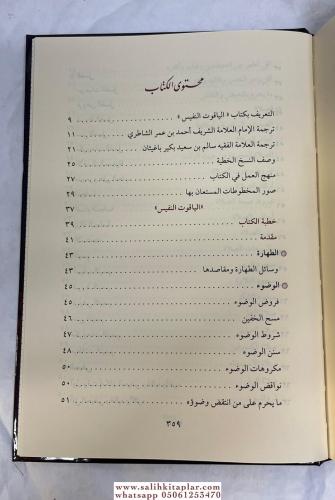 محتوى الكتاب
التعريف بكتاب « الياقوت النفيس » ٩
ترجمة الإمام العلامة الشريف أحمد بن عمر الشاطري ١١
ترجمة العلامة الفقيه سالم بن سعيد بكير باغيثان ٢١
وصف النسخ الخطية ٢٥
منهج العمل في الكتاب ٢٧
صور المخطوطات المستعان بها ٢٩
«الياقوت النفيس» ٣٧
خطبة الكتاب ٣٩
مقدمة ٤١
الطهارة ٤٣
وسائل الطهارة ومقاصدها ٤٣
الوضوء ٤٥
فروض الوضوء ٤٥
مسح الخفين ٤٦
شروط الوضوء ٤٧
سنن الوضوء ٤٨
مكروهات الوضوء ٥٠
نواقض الوضوء ٥٠
ما يحرم على من انتقض وضوؤه ٥١
٣٥٩
www.salihkitaplar.com
whatsapp 05061253470